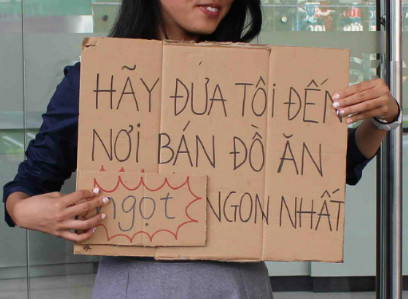 HÃY ĐỨA TÔI ĐẾN
NƠI BÁN ĐỒ ĂN
ngọt NGON NHẤT